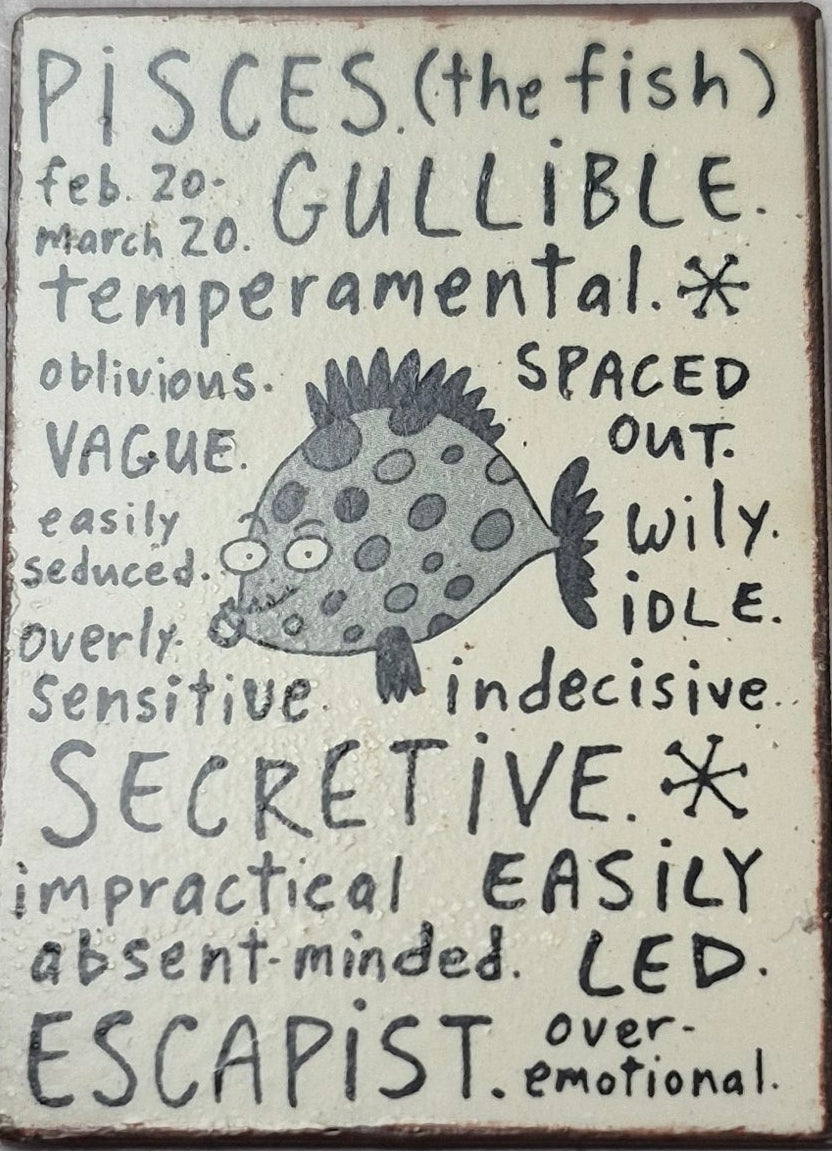 PiSCES. (the fish)
feb. 20-
march 20.
GULLiBLE.
temperamental.
oblivious.
SPACED
OUT.
VAGUE.
easily
seduced.
wily.
iDLE.
overly
sensitive.
indecisive.
SECRETiVE.
impractical
EASiLY
LED.
absent-minded.
ESCAPiST.
over-
emotional.